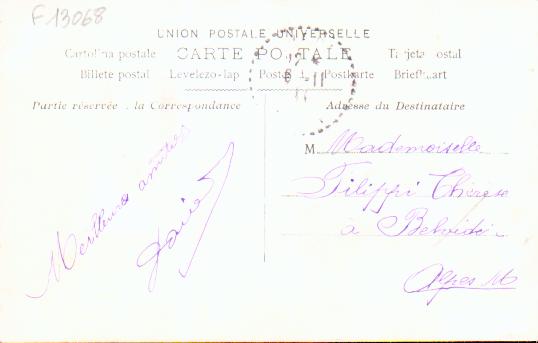 F 13068
UNION POSTALE UNIVERSELLE
Cartolina postale CARTE POSTALE Tarjeta postal
Billete postal Levelezo-lap Postkarte Briefkaart
Partie réservée à la Correspondance
Adresse du Destinataire
M Mademoiselle
Filippi Thérèse
à Belvédère
Alpes M
Meilleures amitiés